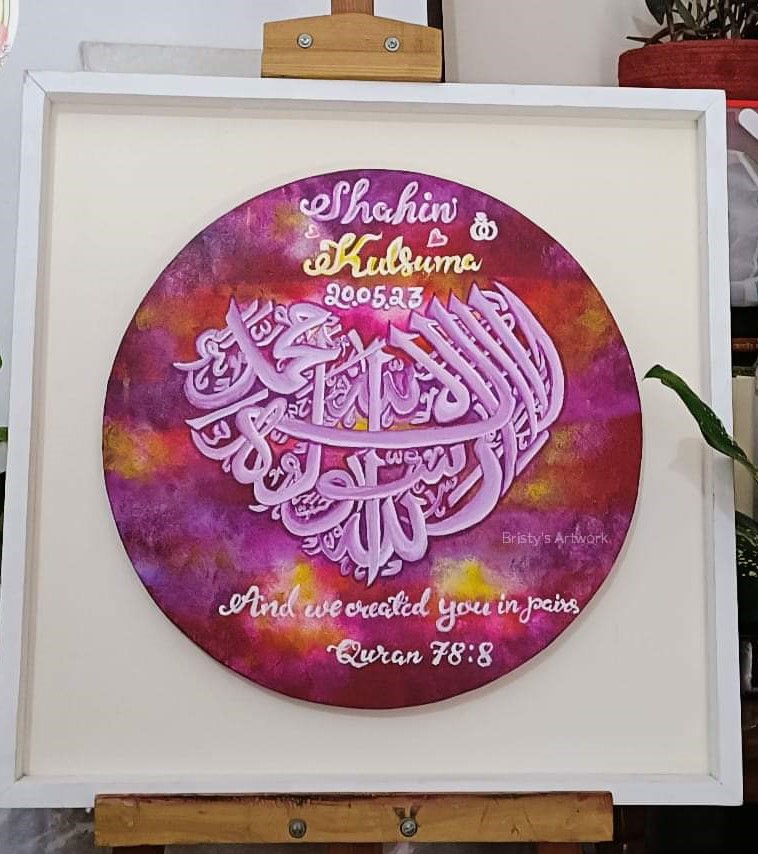 Shahin
Kulsuma
20.05.23
لا إله إلا الله
محمد رسول الله
Bristy's Artwork
And we created you in pairs
Quran 78:8